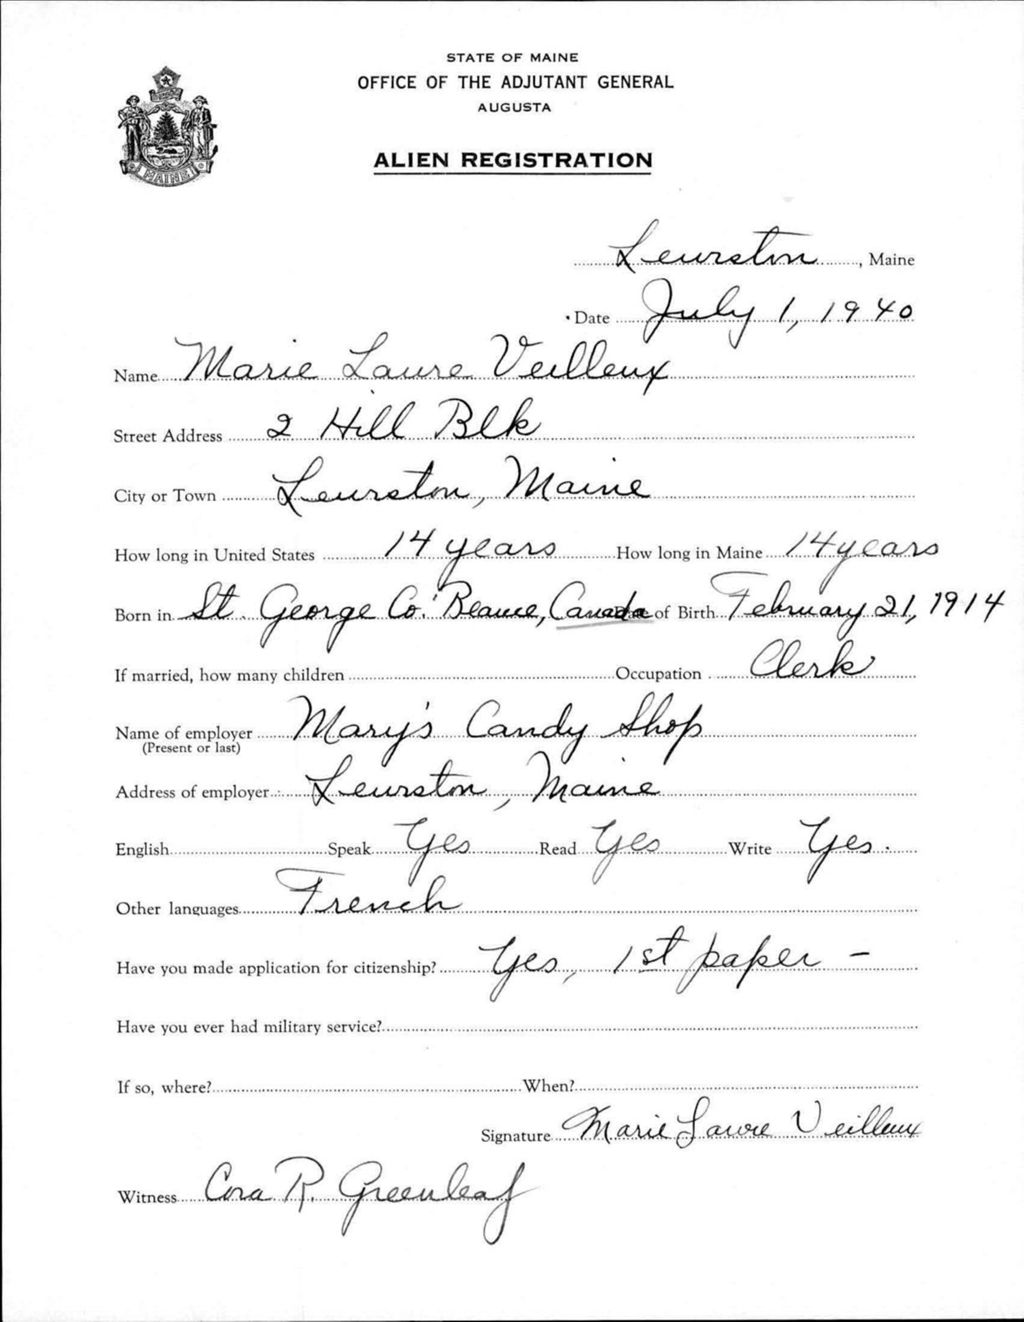 STATE OF MAINE
OFFICE OF THE ADJUTANT GENERAL
AUGUSTA
ALIEN REGISTRATION
MAINE
Lewiston, Maine
Date July 1, 1940
Name Marie Laure Veilleux
Street Address 2 Hill Blk
City or Town Lewiston, Maine
How long in United States 14 years How long in Maine 14 years
Born in St. George Co. Beauce, Canada of Birth February 21, 1914
If married, how many children Occupation Clerk
Name of employer Mary's Candy Shop
(Present or last)
Address of employer Lewiston, Maine
English Speak Yes Read Yes Write Yes.
Other languages French
Have you made application for citizenship? Yes, 1st paper -
Have you ever had military service?
If so, where? When?
Signature Marie Laure Veilleux
Witness Cora R. Greenleaf